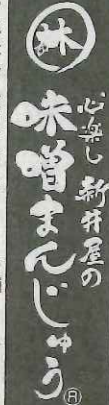 林
心楽し 新井屋の
味噌まんじゅう
㊊